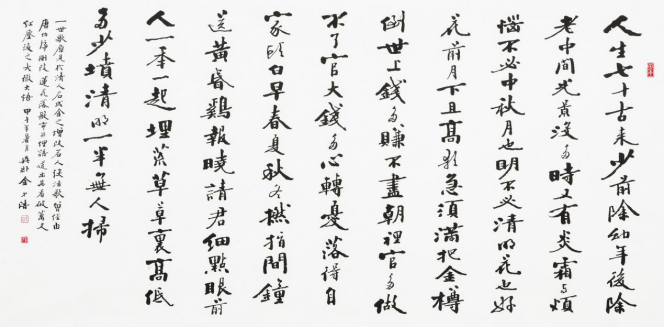 人生七十古来少前除幼年後除
老中間光景沒多時又有炎霜与煩
惱不必中秋月也明不必清明花也好
花前月下且高歌急須滿把金樽
倒世上錢多賺不盡朝裡官多做
不了官大錢多心轉憂落得自
家頭白早春夏秋冬撚指間鐘
送黃昏鷄報曉請君細點眼前
人一年一起埋荒草草裏高低
多少墳清明一半無人掃
一世歌原是於清人石成金之增改
唐伯虎刪改蓮花落般市井俚語道出其看破
紅塵後之大徹大悟甲午年